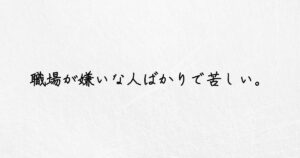 職場が嫌いな人ばかりで苦しい。